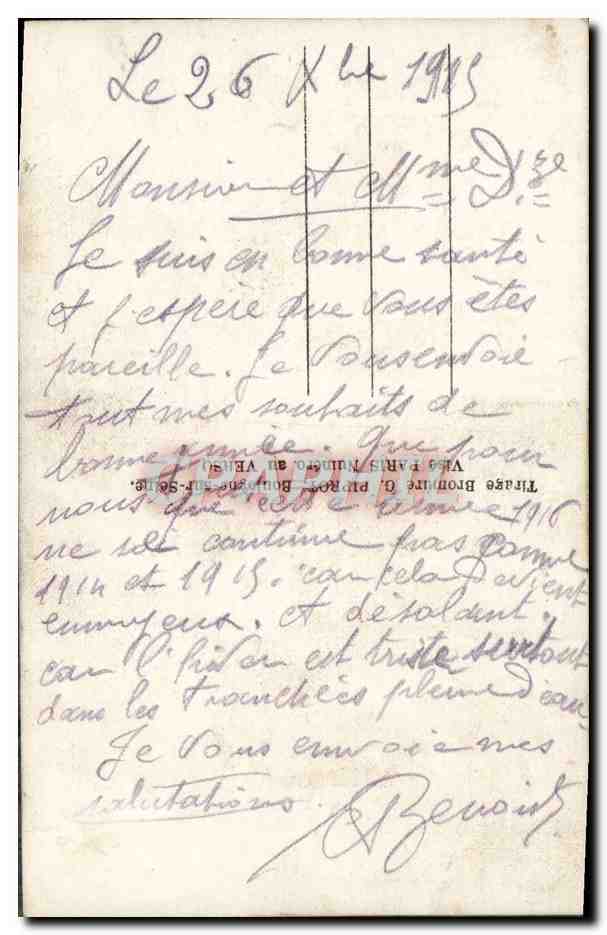 Le 26 Xbre 1915
Monsieur et Mme
Je suis en bonne santé
et j'espère que vous êtes
pareille. Je vous envoie
tout mes souhaits de
bonne année. Que pour
nous que cette année 1916
ne se continue pas comme
1914 et 1915. car cela devient
ennuyeux. et désolant.
car l'hiver est triste surtout
dans les tranchées pleine d'eau
Je vous envoie mes
salutations.
Benoist
Tirage Bromure G. PIPROT, Boulogne-sur-Seine.
Visé PARIS Numéro au VERSO